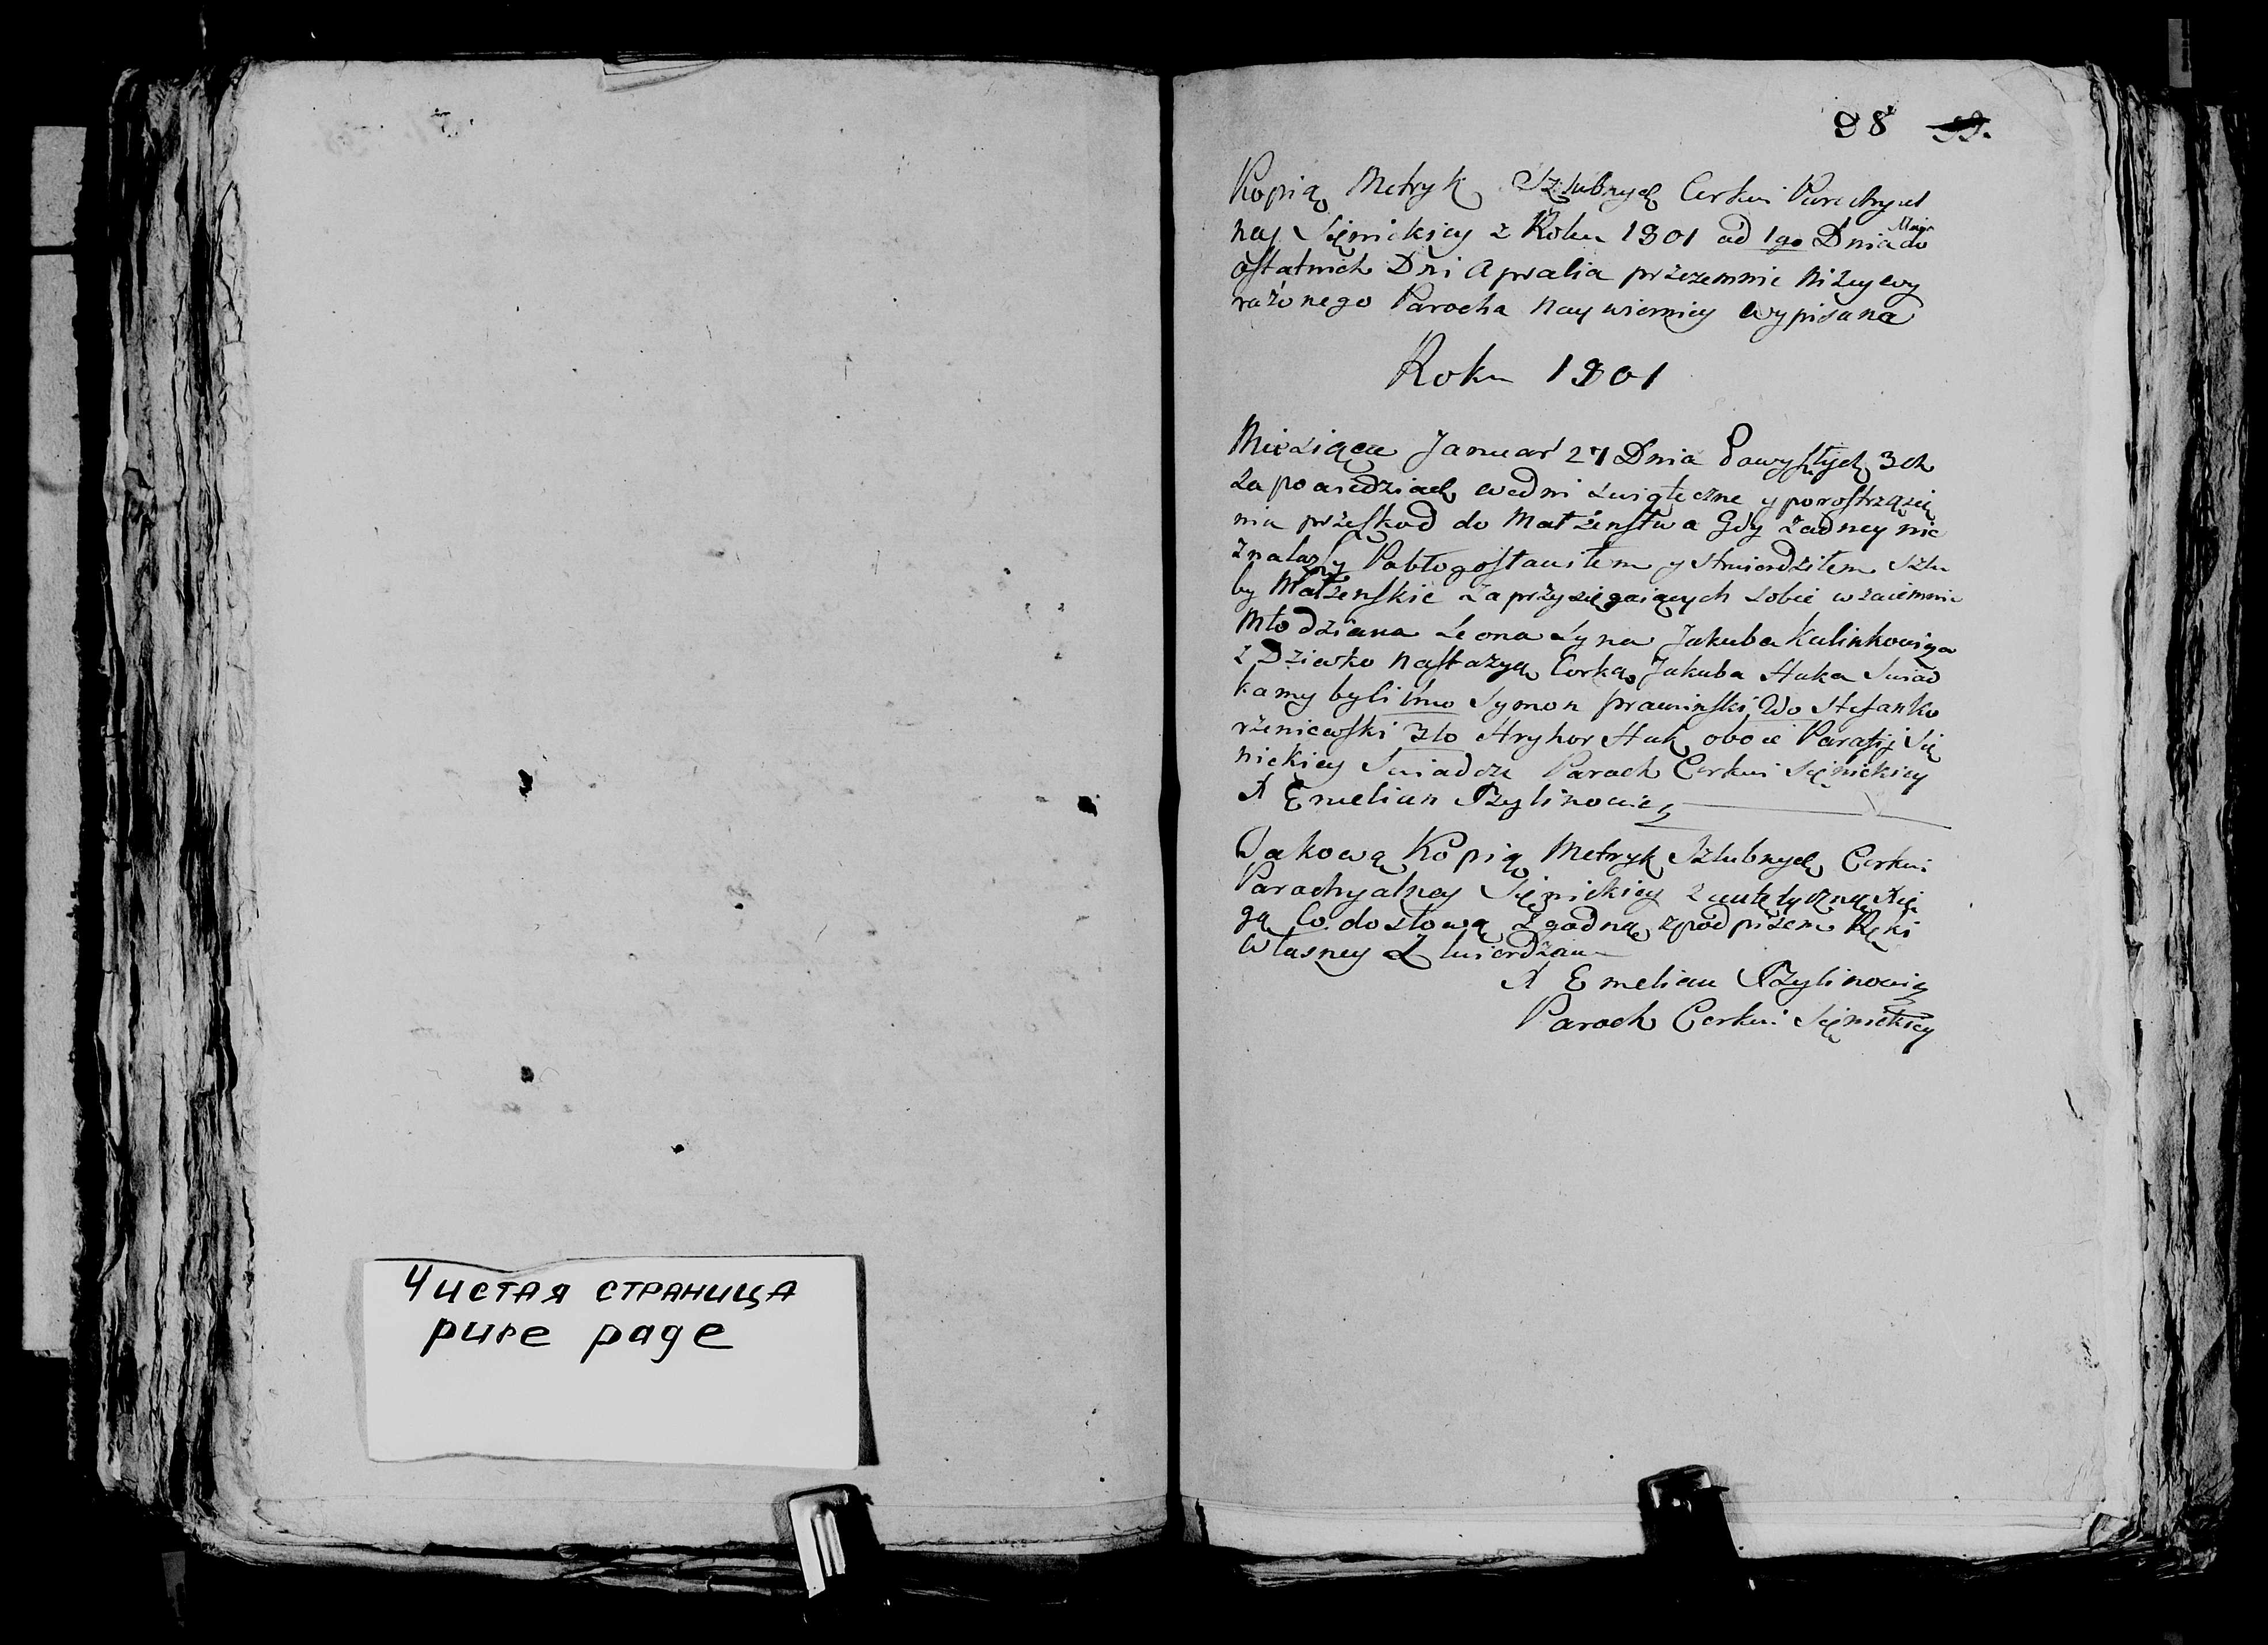 Чистая страница
pure page
98 99.
Kopią Metryk Szlubnych Cerkwi Parochyal
ney Sięnickiey z Roku 1801 od 1go Dnia Maja do
ostatnich Dni Apralia przezemnie niżey wy
rażonego Parocha naywierniey wypisana
Roku 1801
Miesiąca Januar 27 Dnia Powyszłych 3ch
zapowiedziach wedni swięteczne y porostrząsię
niu przeskod do Małżenstwa Gdy żadney nie
znalazszy Pobłogosławiłem y stwierdziłem szlu
by Małżenskie zaprzysięgaiących sobie wzaiemnie
Młodziana Leona Syna Jakuba Kalinkowiga
z Dziewko Nastazyą Corką Jakuba Huka Swiad
kamy byli 1mo Symon Prawinski 2do Stefan Ko
rzeniewski 3tio Hryhor Huk oboie Parafij Się
nickiey Swiadczę Paroch Cerkwi Sięnickiey
X Emelian Szylinowicz
Jakową Kopią Metryk Szlubnych Cerkwi
Parochyalney Sięnickiey z autętyczną Xię
gą Co dosłowa Zgodną z podpisem Ręki
własney Ztwierdzam
X Emelian Szylinowicz
Paroch Cerkwi Sięnickiey